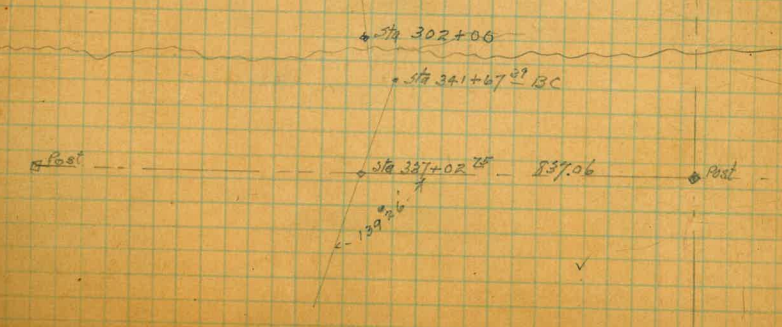 Sta 302+06
Sta 341+67 49 BC
Post Sta 337+02 75 837.06 Post
139°26'